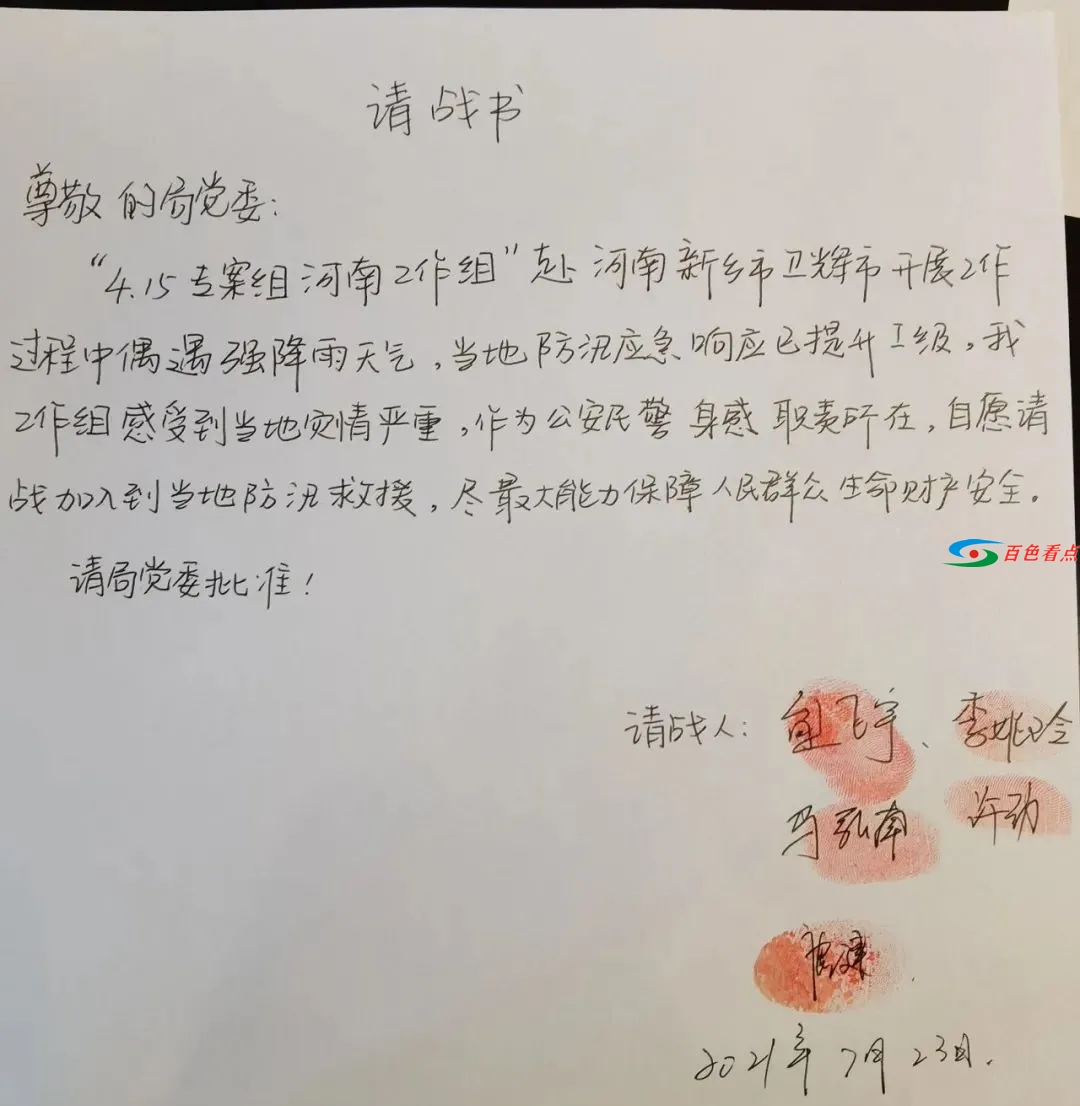 请战书
尊敬的局党委：
“4.15专案组河南工作组”赴河南新乡市卫辉市开展工作
过程中偶遇强降雨天气，当地防汛应急响应已提升I级，我
工作组感受到当地灾情严重，作为公安民警身感职责所在，自愿请
战加入到当地防汛救援，尽最大能力保障人民群众生命财产安全。
百色看点
请局党委批准！
请战人：飞宇、李姚玲
马弘南 许劲
2021年7月23日.